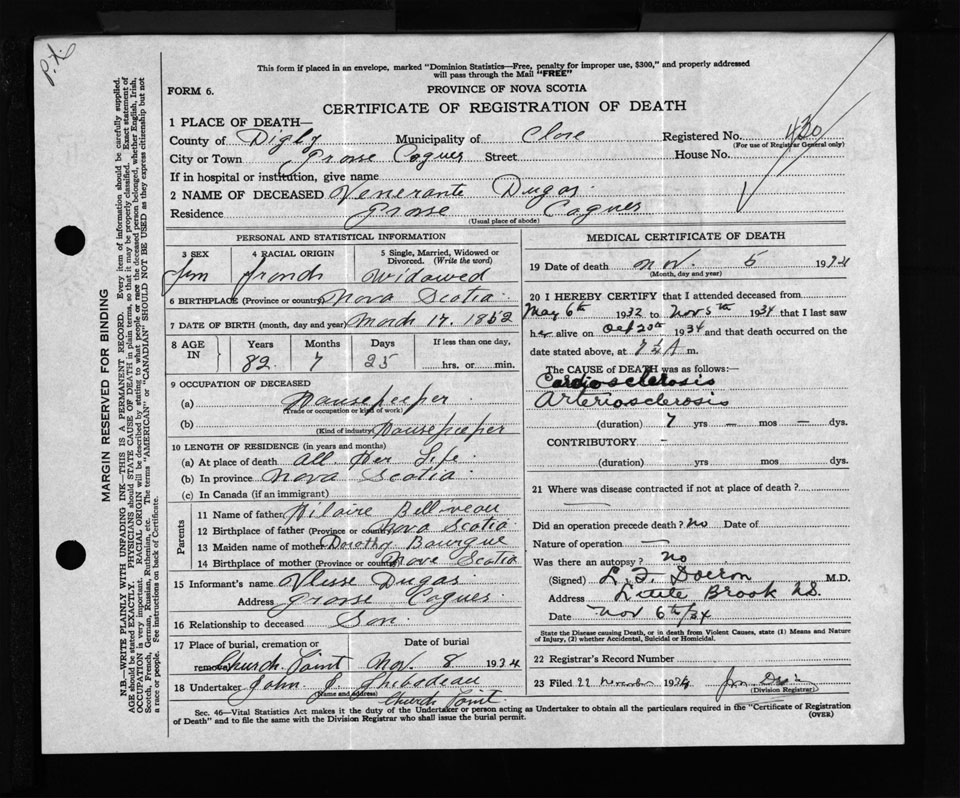 p.t.
This form if placed in an envelope, marked "Dominion Statistics—Free, penalty for improper use, $300," and properly addressed
will pass through the Mail "FREE"
FORM 6.
PROVINCE OF NOVA SCOTIA
CERTIFICATE OF REGISTRATION OF DEATH
1 PLACE OF DEATH—
County of Digby Municipality of Clare Registered No. 430
(For use of Registrar General only)
City or Town Grosse Coques Street House No.
If in hospital or institution, give name
2 NAME OF DECEASED Venerante Dugas
Residence Grosse Coques
(Usual place of abode)
PERSONAL AND STATISTICAL INFORMATION
3 SEX 4 RACIAL ORIGIN 5 Single, Married, Widowed or
Divorced. (Write the word)
Fem French Widowed
6 BIRTHPLACE (Province or country) Nova Scotia
7 DATE OF BIRTH (month, day and year) March 17. 1852
8 AGE IN Years Months Days If less than one day,
82 7 25 hrs. or min.
9 OCCUPATION OF DECEASED
(a) Housekeeper
(Trade or occupation or kind of work)
(b) Housekeeper
(Kind of industry)
10 LENGTH OF RESIDENCE (in years and months)
(a) At place of death All Her Life
(b) In province Nova Scotia
(c) In Canada (if an immigrant)
Parents
11 Name of father Hilaire Belliveau
12 Birthplace of father (Province or country) Nova Scotia
13 Maiden name of mother Dorothy Bourque
14 Birthplace of mother (Province or country) Nova Scotia
15 Informant's name Ulisse Dugas
Address Grosse Coques
16 Relationship to deceased Son
17 Place of burial, cremation or Date of burial
removal Church Point Nov. 8 1934
18 Undertaker John J. Thibodeau
(Name and address) Church Point
MEDICAL CERTIFICATE OF DEATH
19 Date of death Nov. 5 1934
(Month, day and year)
20 I HEREBY CERTIFY that I attended deceased from
May 6th 1932 to Nov 5th 1934 that I last saw
her alive on Oct 20th 1934 and that death occurred on the
date stated above, at A m.
The CAUSE of DEATH was as follows:—
Cardiosclerosis
Arteriosclerosis
(duration) 7 yrs — mos — dys.
CONTRIBUTORY —
(duration) yrs mos dys.
21 Where was disease contracted if not at place of death?
—
Did an operation precede death? no Date of
Nature of operation —
Was there an autopsy? no
(Signed) L. F. Doiron M.D.
Address Little Brook N.S.
Date Nov 6th/34
State the Disease causing Death, or in death from Violent Causes, state (1) Means and Nature
of Injury, (2) whether Accidental, Suicidal or Homicidal.
22 Registrar's Record Number
23 Filed 22 November 1934
(Division Registrar)
Sec. 46—Vital Statistics Act makes it the duty of the Undertaker or person acting as Undertaker to obtain all the particulars required in the "Certificate of Registration
of Death" and to file the same with the Division Registrar who shall issue the burial permit.
(OVER)
MARGIN RESERVED FOR BINDING
N.B.—WRITE PLAINLY WITH UNFADING INK—THIS IS A PERMANENT RECORD. Every item of information should be carefully supplied.
AGE should be stated EXACTLY. PHYSICIANS should STATE CAUSE OF DEATH in plain terms so that it may be properly classified. Exact statement of
OCCUPATION is very important. RACIAL ORIGIN will be described by stating to what people or race the deceased person belonged, whether English, Irish,
Scotch, French, German, Russian, Ruthenian, etc. The terms "AMERICAN" or "CANADIAN" SHOULD NOT BE USED as they express citizenship but not
a race or people. See instructions on back of Certificate.